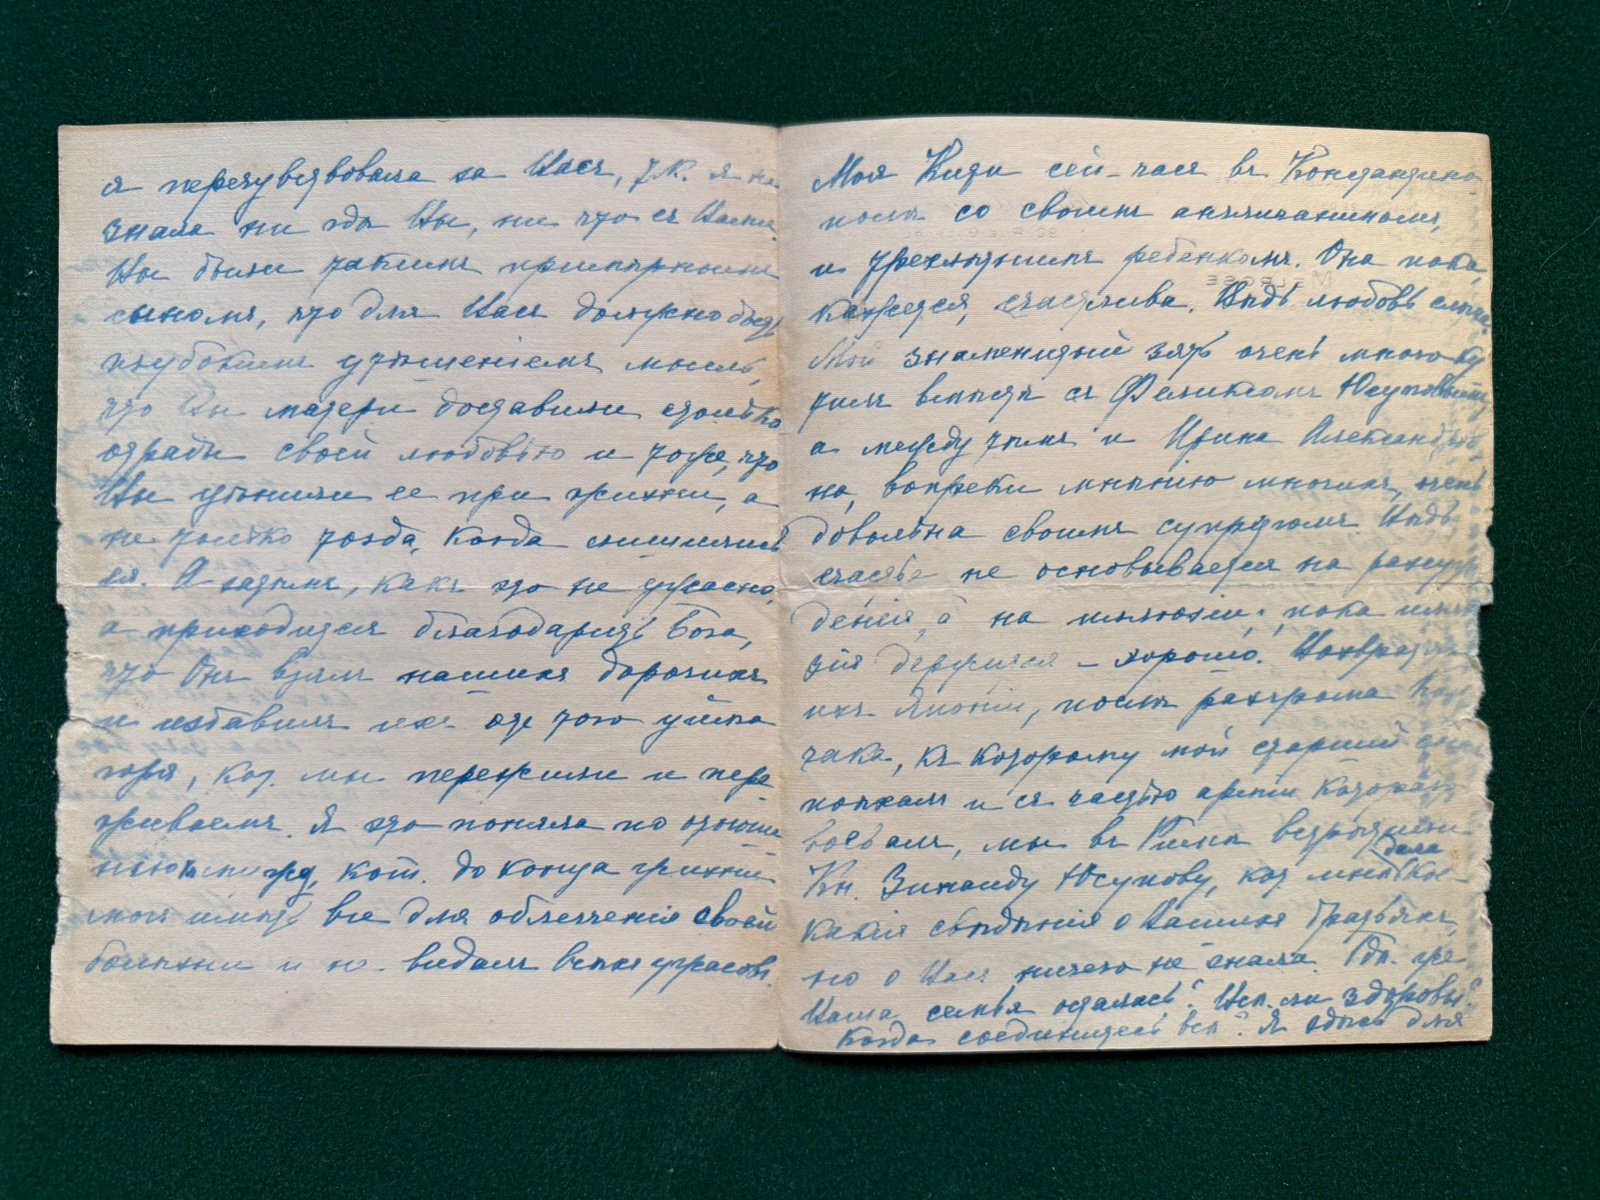 я перечувствовала за Васъ, т.к. я не
знала ни гдѣ Вы, ни что съ Вами.
Вы были такимъ примѣрнымъ
сыномъ, что для Васъ должно быть
глубокимъ утѣшеніемъ мысль,
что Вы матери доставили столько
отрады своей любовью и тоже, что
Вы цѣнили ее при жизни, а
не только тогда, когда лишились
ея. А затѣмъ, какъ это не ужасно,
а приходится благодарить Бога,
что Онъ взялъ нашихъ дорогихъ
и избавилъ ихъ отъ того
горя, кот. мы пережили и пере
живаемъ. Я это поняла по отноше
нію къ мужу, кот. до конца жизни
могъ имѣть все для облегченія своей
болѣзни и не видалъ всѣхъ ужасовъ.
Моя Кити сей-часъ въ Константино
полѣ со своимъ англичаниномъ,
и трехлѣтнимъ ребенкомъ. Она пока,
кажется, счастлива. Вѣдь любовь слѣпа.
Мой знаменитый зять очень много ку
тилъ вмѣстѣ съ Феликсомъ Юсуповымъ,
а между тѣмъ и Ирина Александров
на, вопреки мнѣнію многихъ, очень
довольна своимъ супругомъ. Вѣдь
счастье не основывается на разсуж
деніи, а на иллюзіи; пока иллю
зія держится – хорошо. Возвращаясь
изъ Японіи, послѣ разгрома Кол
чака, къ которому мой старшій сынъ
поѣхалъ и съ частью арміи котораго
воевалъ, мы въ Римѣ встрѣтили
Кн. Зинаиду Юсупову, кот. мнѣ дала кое-
какія свѣдѣнія о Вашихъ братьяхъ,
но о Васъ ничего не знала. Гдѣ же
Ваша семья осталась? Всѣ ли здоровы?
Когда соединитесь всѣ? Я здѣсь для